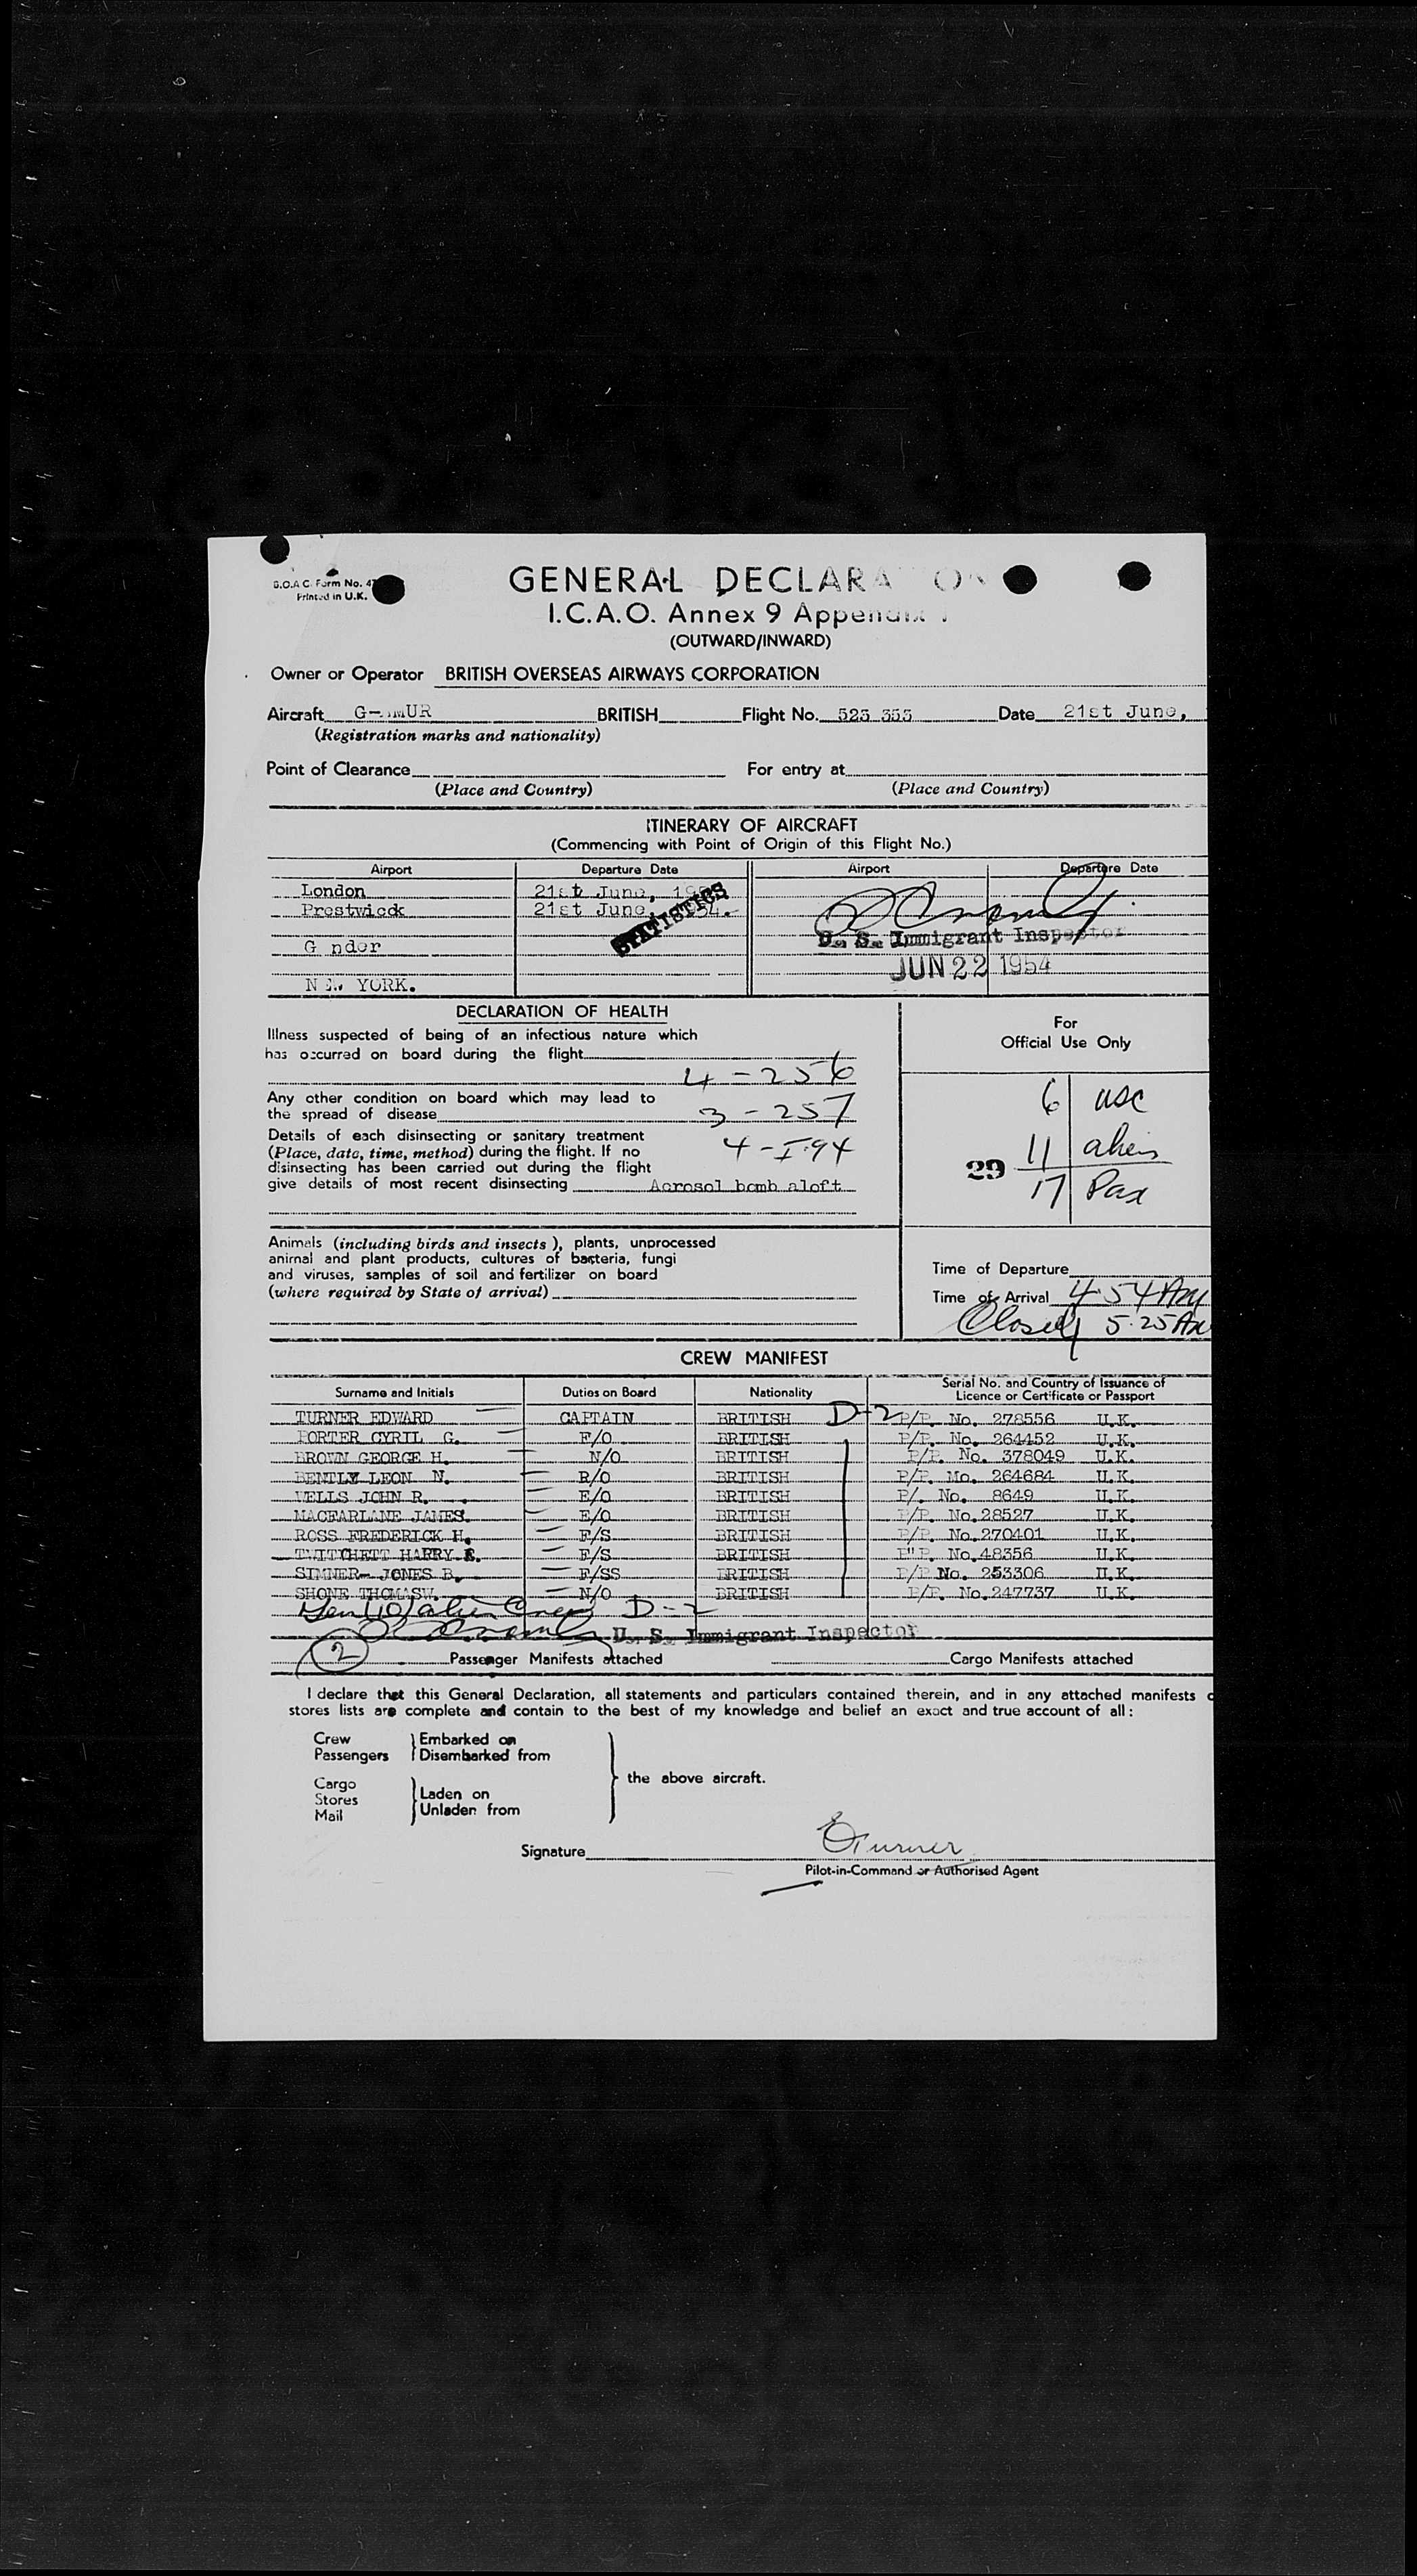 B.O.A.C. Form No.
Printed in U.K.
GENERAL DECLARA
I.C.A.O. Annex 9 Appendix
(OUTWARD/INWARD)
Owner or Operator BRITISH OVERSEAS AIRWAYS CORPORATION
Aircraft BRITISH Flight No. Date 21st June,
(Registration marks and nationality)
Point of Clearance For entry at
(Place and Country) (Place and Country)
ITINERARY OF AIRCRAFT
(Commencing with Point of Origin of this Flight No.)
Airport Departure Date Airport Departure Date
London 21st June,
Prestwick 21st June, 1954.
STATISTICS
G nder
U. S. Immigrant Inspector
JUN 22 1954
NEW YORK.
DECLARATION OF HEALTH
Illness suspected of being of an infectious nature which
has occurred on board during the flight
4 - 256
Any other condition on board which may lead to
the spread of disease 3 - 257
Details of each disinsecting or sanitary treatment
(Place, date, time, method) during the flight. If no 4 - I-94
disinsecting has been carried out during the flight
give details of most recent disinsecting Aerosol bomb aloft
For
Official Use Only
6 USC
29 11 alien
17 Pax
Animals (including birds and insects), plants, unprocessed
animal and plant products, cultures of bacteria, fungi
and viruses, samples of soil and fertilizer on board
(where required by State of arrival)
Time of Departure
Time of Arrival 4:54 AM
Closed 5:25 AM
CREW MANIFEST
Surname and Initials Duties on Board Nationality Serial No. and Country of Issuance of Licence or Certificate or Passport
TURNER EDWARD CAPTAIN BRITISH D-2 P/P. No. 278556 U.K.
PORTER CYRIL G. F/O BRITISH P/P. No. 264452 U.K.
BROWN GEORGE H. N/O BRITISH P/P. No. 378049 U.K.
BENTLY LEON N. R/O BRITISH P/P. No. 264684 U.K.
WELLS JOHN R. E/O BRITISH P/. No. 8649 U.K.
MACFARLANE JAMES. E/O BRITISH P/P. No. 28527 U.K.
ROSS FREDERICK H. F/S BRITISH P/P. No. 270401 U.K.
TWITCHETT HARRY E. F/S BRITISH P"P. No. 48356 U.K.
SIMNER- JONES B. F/SS BRITISH P/P No. 253306 U.K.
SHONE THOMAS W. N/O BRITISH P/P. No. 247737 U.K.
Ten (10) alien Crew D-2
U. S. Immigrant Inspector
2 Passenger Manifests attached Cargo Manifests attached
I declare that this General Declaration, all statements and particulars contained therein, and in any attached manifests
stores lists are complete and contain to the best of my knowledge and belief an exact and true account of all:
Crew Embarked on
Passengers Disembarked from
the above aircraft.
Cargo
Stores Laden on
Mail Unladen from
Signature E Turner
Pilot-in-Command or Authorised Agent